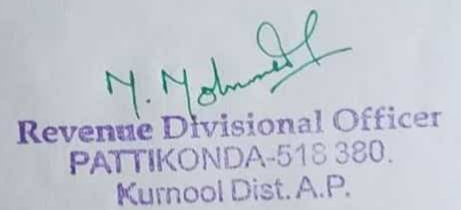 Revenue Divisional Officer
PATTIKONDA-518 380.
Kurnool Dist. A.P.